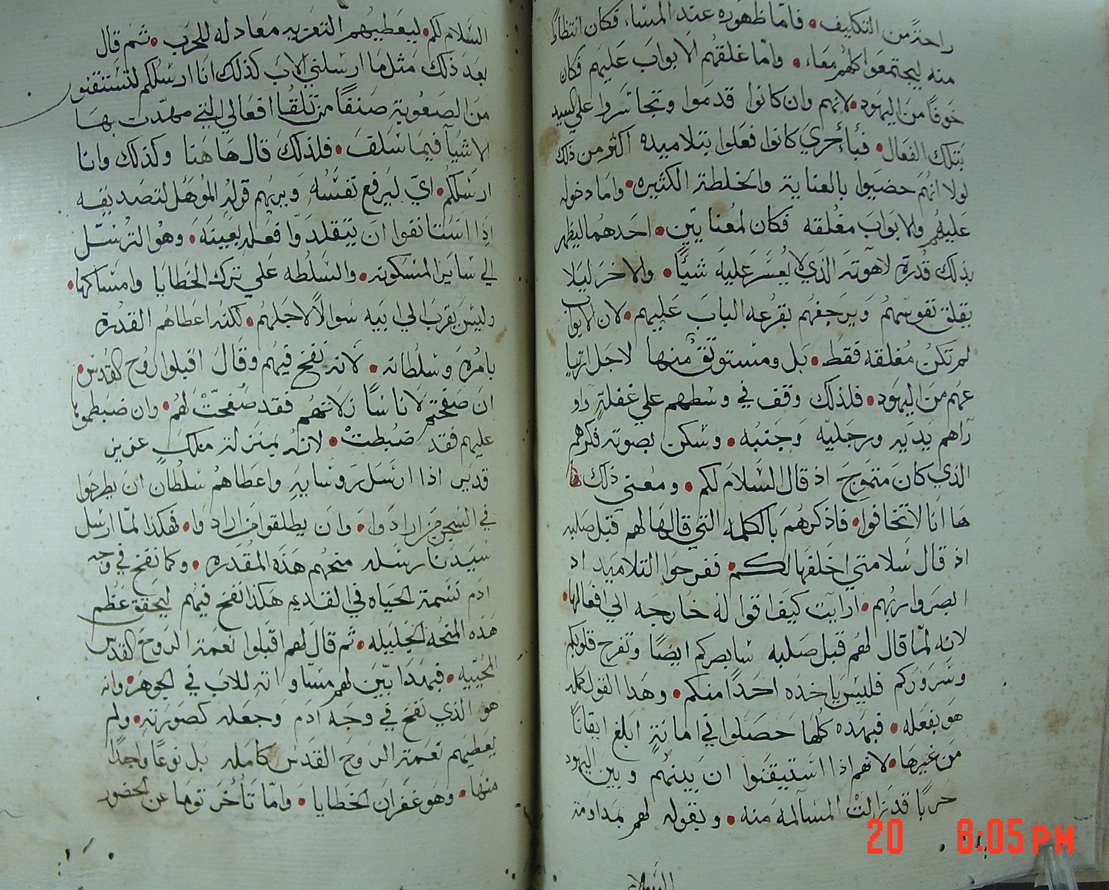 راحة من التكليف • فاما ظهوره عند المساء فكان انتظارًا
منه ليجتمعوا كلهم معًا • واما غلقهم الابواب عليهم فكان
خوفًا من اليهود • لانهم وان كانوا قدموا وتجاسروا علي السيد
بتلك الفعال • فبأحري كانوا فعلوا بتلاميده اكثر من ذلك
لولا انهم حضيوا بالعناية والحلطة الكثيره • واما دخوله
عليهم والابواب مغلقه فكان لمعنايين • احدهما ليظهر
بدلك قدرة لاهوته الذي لا يعسر عليه شيًا • والاخر ليلا
يقلق نفوسهم ويرجفهم بقرعه الباب عليهم • لان الابواب
لم تكن مغلقه فقط • بل ومستوتق منها لاجل
عهم من اليهود • فلذلك وقف في وسطهم علي غفلةٍ و
راهم يديه ورجليه وجنبه • وسكن بصوته فكرهم
الذي كان متموج اد قال السلام لكم • ومعني ذلك
ها انا لاتخافوا • فاذكرهم بالكلمه التي قالها لهم قبل صلبه
اد قال سلامتي اخلفها لكم • ففرحوا التلاميد اد
ابصروا ربهم • ارايت كيف اقواله خارجه الي افعالها •
لانه لما قال لهم قبل صلبه سابصركم ايضًا وتفرح قلوبكم
وسروركم فليس ياخده احدًا منكم • وهدا القول كله
هو بفعله • فبهده كلها حصلوا في امانةٍ ابلغ ايقانًا
من غيرها • لانهم اذا استيقنوا ان بينهم وبين اليهود
حربًا قد زالت المسالمه منه • وبقوله لهم بمداومة
السلام
السلام لكم • ليعطيهم التعزيه معادله للحرب • ثم قال
بعد ذلك مثل ما ارسلني الاب كذلك انا ارسلكم
من الصعوبة افعالي التي مهدت بها
الاشيآ فيما سلف • فلذلك قال هاهنا وكذلك وانا
ارسلكم • اي ليرفع نفسه ويريهم قوله الموهل لتصديقه
اذا استانفوا ان يتقلدوا فعله بعينه • وهو الترسل
الي ساير المسكونه • والسلطه علي ترك الخطايا وامساكها •
وليس يقرب الي ابيه سوالًا لاجلهم • لكنه اعطاهم القدرة
بامره وسلطانه • لانه نفخ فيهم وقال اقبلوا روح القدس •
ان صفحتم لاناسًا زلاتهم فقد صفحت لهم • وان ضبطموها
عليهم فقد ضبطت • لانه بمنزلة ملكٍ عزيزٍ
قديرٍ اذا ارسل روسايه واعطاهم سلطان ان يطرحوا
في السجن من ارادوا • وان يطلقوا من ارادوا • فهكذا لما ارسل
سيدنا رسله منحهم هذه المقدره • وكما نفخ في وجه
ادم نسمة الحياه في القديم هكذا نفخ فيهم ليحقق عظم
هذه المنحه الجليله • ثم قال لهم اقبلوا نعمة الروح القدس
المحييه • فبهدا بين لهم مساواته للاب في الجوهر • وانه
هو الذي نفخ في وجه ادم وجعله كصورته • ولم
يعطيهم نعمة الروح القدس كامله بل نوعًا واحدًا
منها • وهو غفران الخطايا • واما تأخر توما عن الحضور
20 8:05 PM